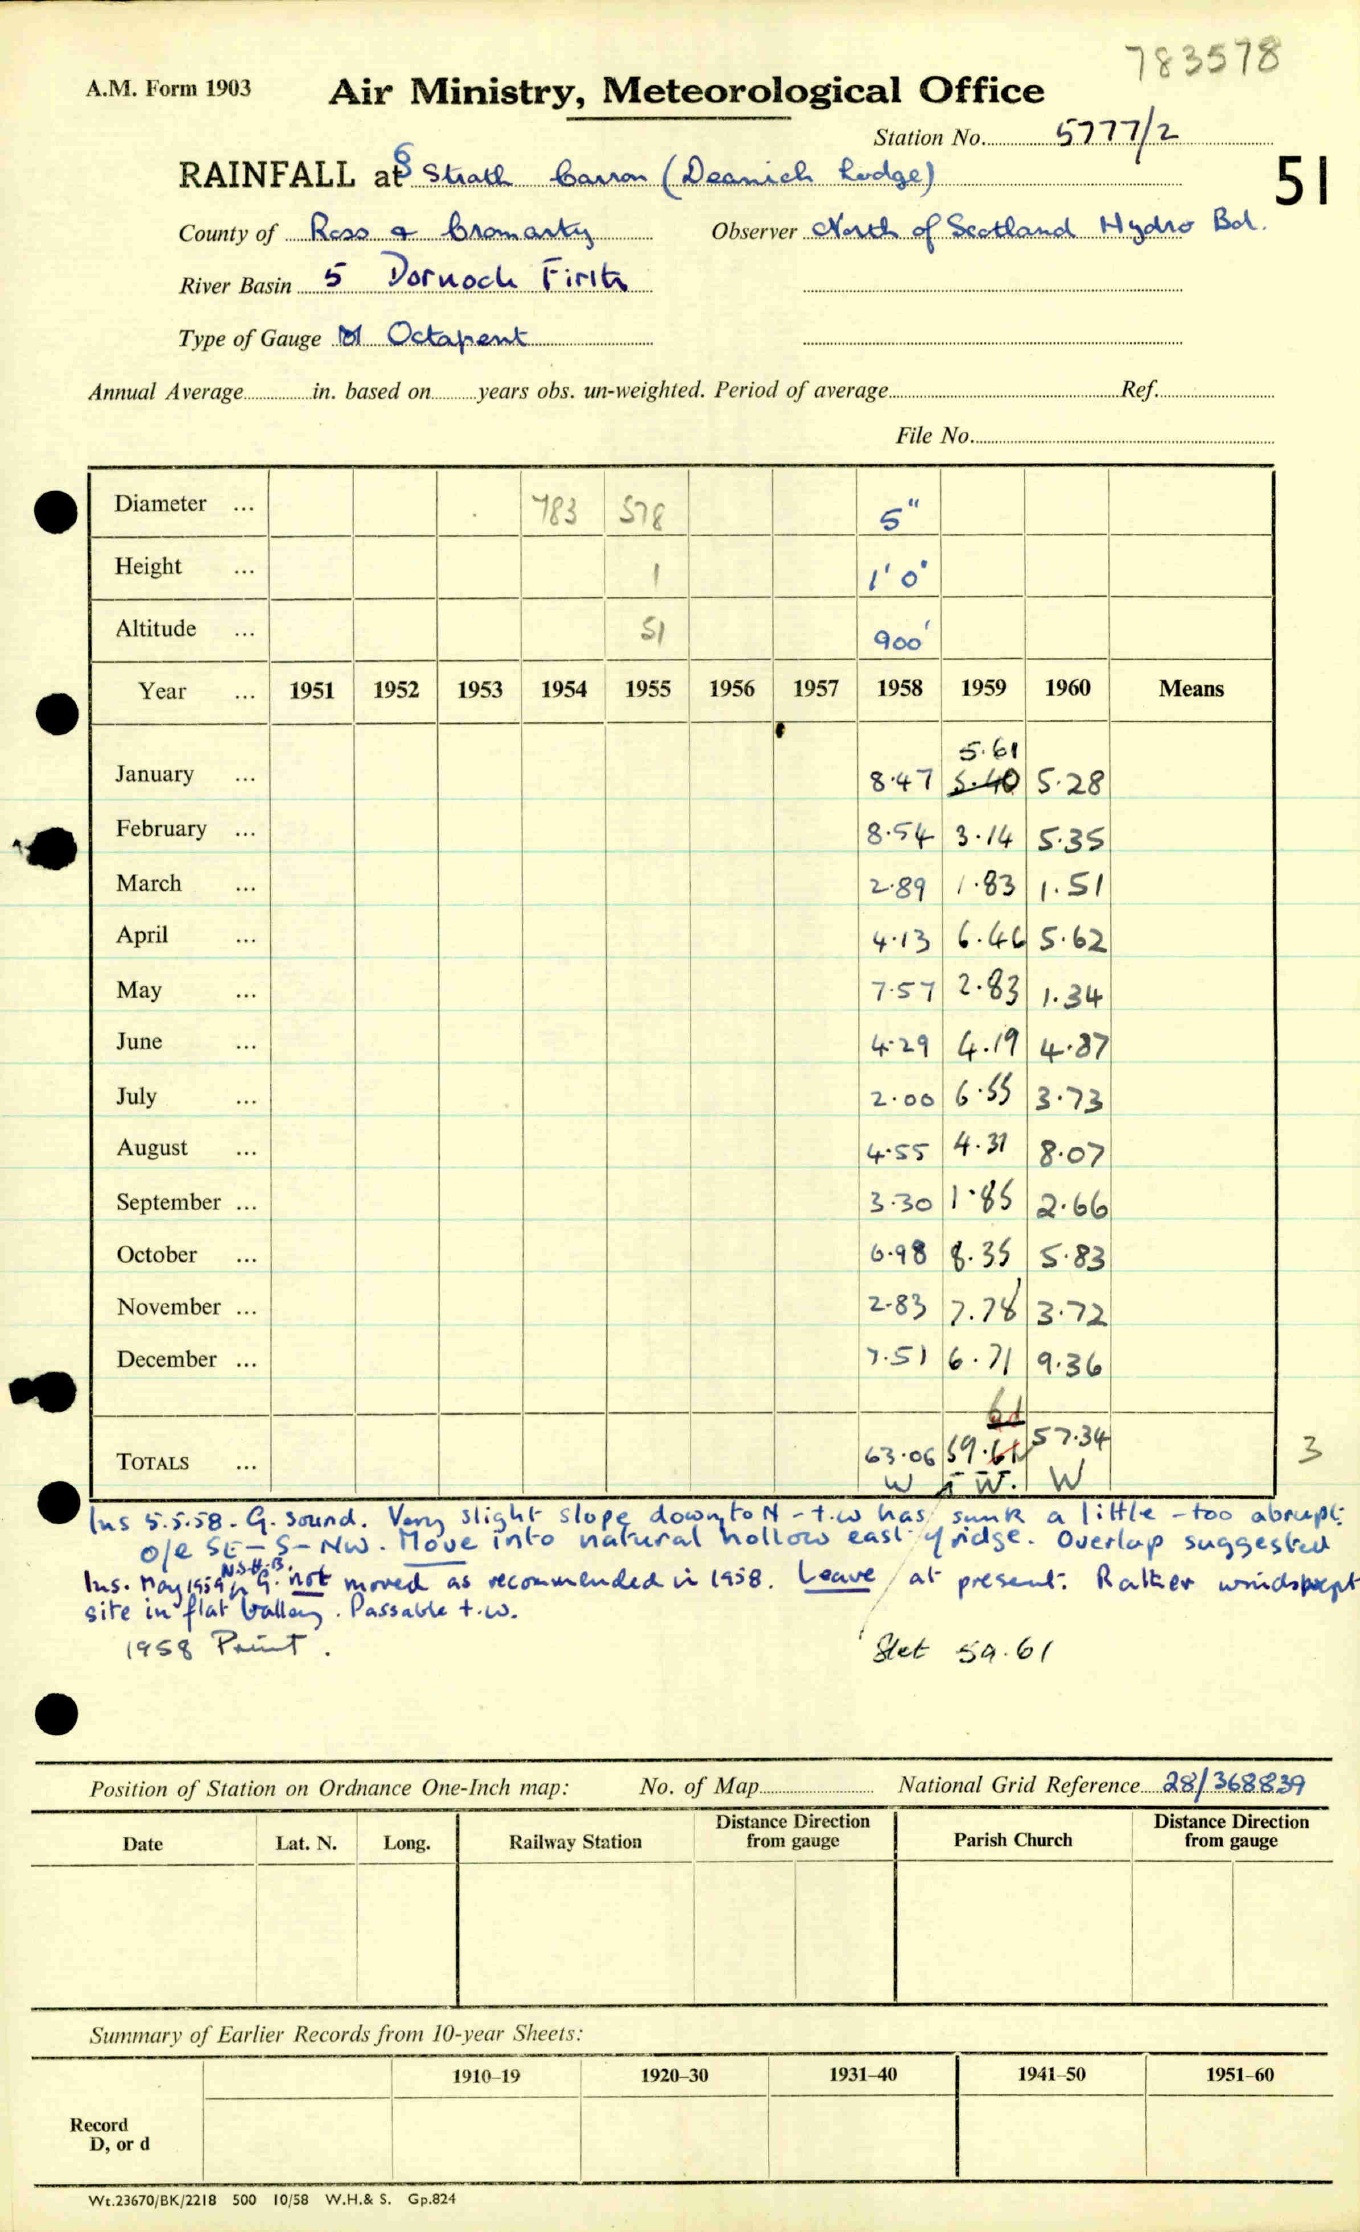 783578
A.M. Form 1903 Air Ministry, Meteorological Office
Station No. 5777/2
51
RAINFALL at Strath Carron (Deanich Lodge)
County of Ross & Cromarty Observer North of Scotland Hydro Bd.
River Basin 5 Dornoch Firth
Type of Gauge Octapent
Annual Average in. based on years obs. un-weighted. Period of average Ref.
File No.
Diameter ... 783 578 5"
Height ... 1 1' 0"
Altitude ... 51 900'
Year ... 1951 1952 1953 1954 1955 1956 1957 1958 1959 1960 Means
5.61
January ... 8.47 5.40 5.28
February ... 8.54 3.14 5.35
March ... 2.89 1.83 1.51
April ... 4.13 6.46 5.62
May ... 7.57 2.83 1.34
June ... 4.29 4.19 4.87
July ... 2.00 6.55 3.73
August ... 4.55 4.31 8.07
September ... 3.30 1.85 2.66
October ... 6.98 8.35 5.83
November ... 2.83 7.78 3.72
December ... 7.51 6.71 9.36
61
TOTALS ... 63.06 59.61 57.34 3
W W. W
Ins 5.5.58. G. sound. Very slight slope down to N - t.w has sunk a little - too abrupt.
o/e SE - S - NW. Move into natural hollow east of ridge. Overlap suggested
N.S.H.B.
Ins. May 1959 G. not moved as recommended in 1958. Leave at present. Rather windswept
site in flat valley. Passable t.w.
1958 Print. Stet 59.61
Position of Station on Ordnance One-Inch map: No. of Map National Grid Reference 28/368839
Date Lat. N. Long. Railway Station Distance Direction from gauge Parish Church Distance Direction from gauge
Summary of Earlier Records from 10-year Sheets:
1910–19 1920–30 1931–40 1941–50 1951–60
Record
D, or d
Wt.23670/BK/2218 500 10/58 W.H.& S. Gp.824